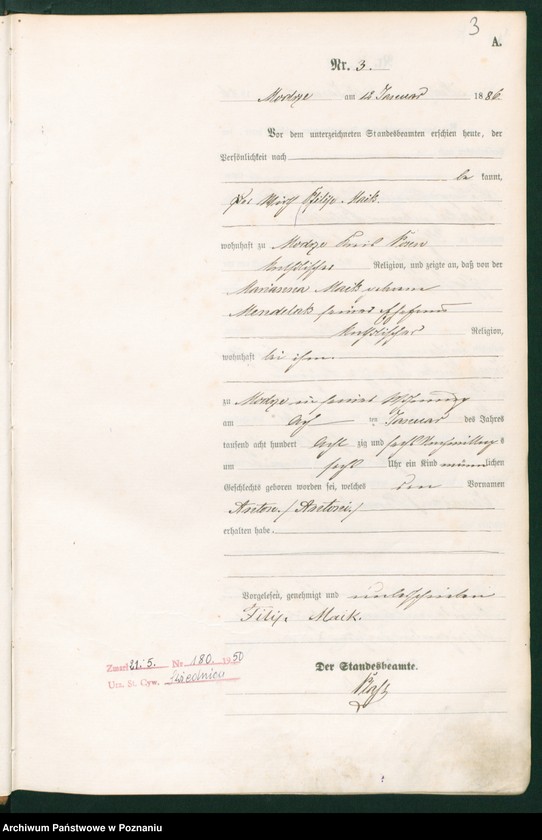 3
A.
Nr. 3.
Modrze am 12 Januar 1886
Vor dem unterzeichneten Standesbeamten erschien heute, der
Persönlichkeit nach
be kannt,
der Wirth Philipp Maik.
wohnhaft zu Modrze Kreis Posen
katholischer Religion, und zeigte an, daß von der
Marianna Maik geborene
Mendelak seiner Ehefrau
katholischer Religion,
wohnhaft bei ihm
zu Modrze in seiner Wohnung
am acht ten Januar des Jahres
tausend acht hundert acht zig und sechs Nachmittags
um sechs Uhr ein Kind männlichen
Geschlechts geboren worden sei, welches den Vornamen
Anton / Antoni /
erhalten habe.
Vorgelesen, genehmigt und unterschrieben
Filip Maik.
Der Standesbeamte.
Zmarł 21.5. Nr 180. 1950
Urz. St. Cyw.
Archiwum Państwowe w Poznaniu